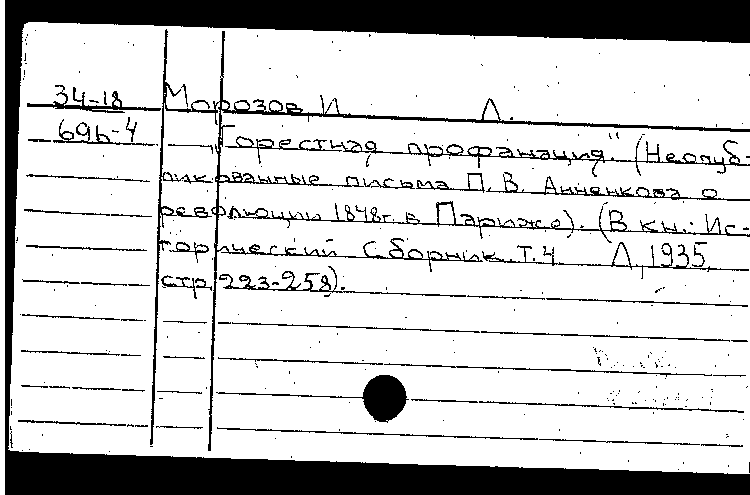 34-18 Морозов, И Л.
69б-4 „Горестная профанация." (Неопуб-
ликованные письма П. В. Анненкова о
революции 1848г. в Париже). (В кн.: Ис-
торический сборник. Т.4 Л, 1935,
стр. 223-258).